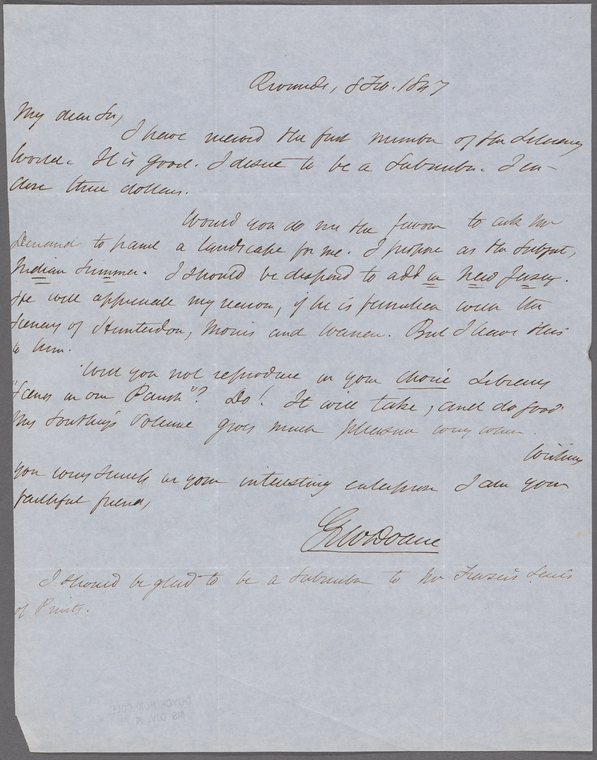 Riverside, 8 Feb. 1847
My dear Sir,
I have received the first number of the Literary
World. It is good. I desire to be a Subscriber. I en-
close three dollars.
Would you do me the favour to ask Mr
Durand to paint a landscape for me. I propose as the Subject,
Indian Summer. I should be disposed to add in New Jersey.
He will appreciate my reason, if he is familiar with the
Scenery of Hunterdon, Morris and Warren. But I leave this
to him.
Will you not reproduce in your choice Library
"Scenes in our Parish"? Do! It will take, and do good.
Mrs Southey's Volume gives much pleasure every where.
Wishing
you every success in your interesting enterprise I am your
faithful friend,
G W Doane
I should be glad to be a Subscriber to Mr Series
of Prints.